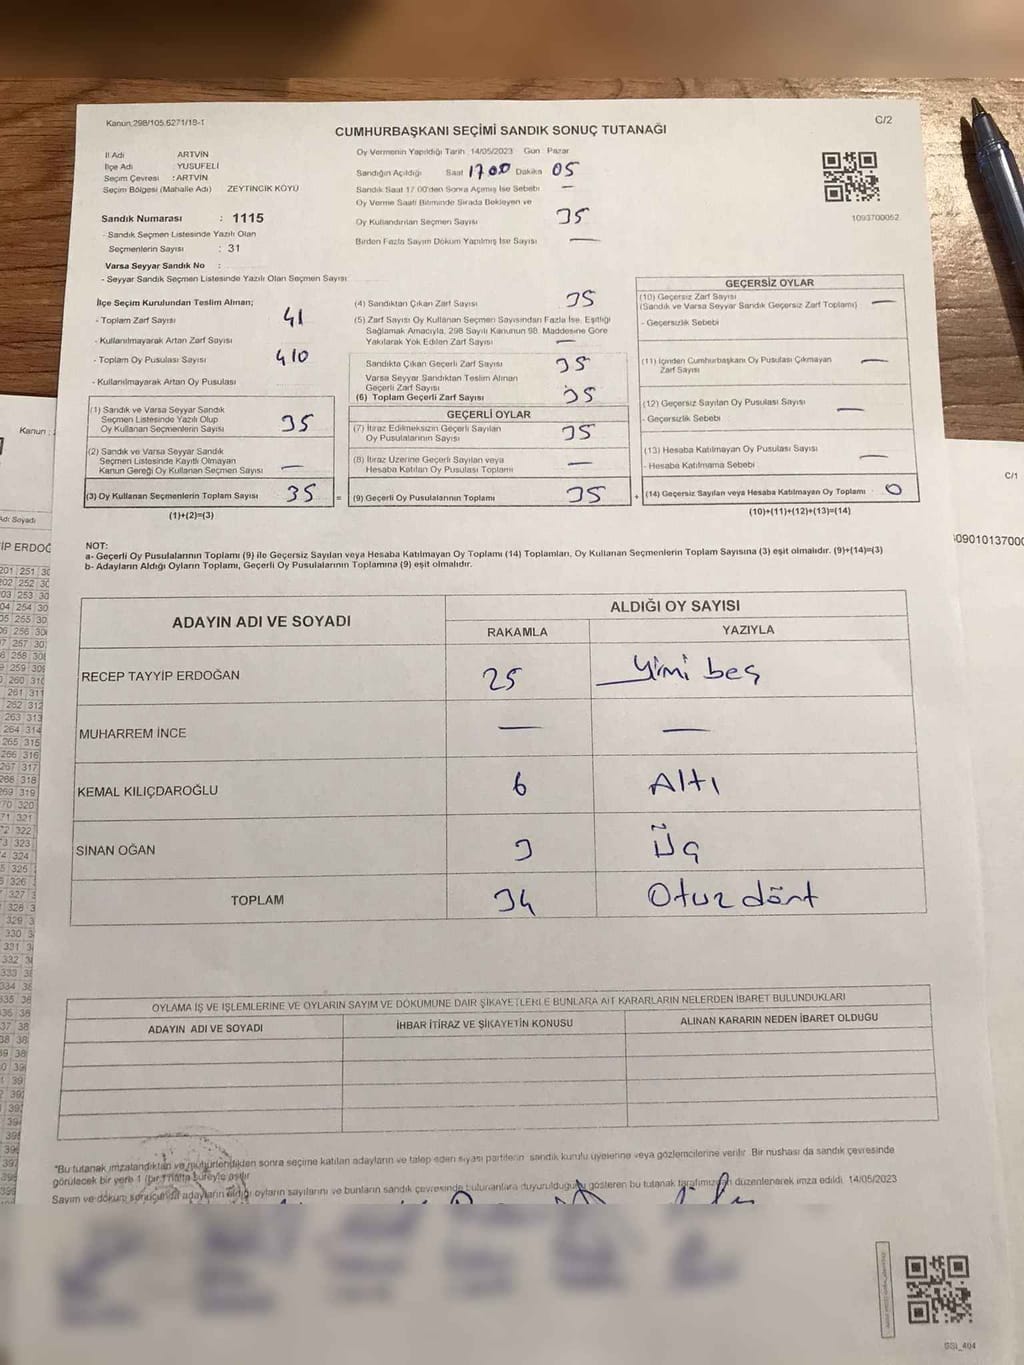 Kanun:298/105.6271/19-1
C/2
CUMHURBAŞKANI SEÇİMİ SANDIK SONUÇ TUTANAĞI
İl Adı ARTVİN
İlçe Adı : YUSUFELİ
Seçim Çevresi : ARTVİN
Seçim Bölgesi (Mahalle Adı) ZEYTİNCİK KÖYÜ
Sandık Numarası : 1115
- Sandık Seçmen Listesinde Yazılı Olan
Seçmenlerin Sayısı : 31
Varsa Seyyar Sandık No :
- Seyyar Sandık Seçmen Listesinde Yazılı Olan Seçmen Sayısı:
Oy Vermenin Yapıldığı Tarih :14/05/2023 Gün : Pazar
Sandığın Açıldığı Saat 1700 Dakika 05
Sandık Saat 17:00'den Sonra Açımış İse Sebebi —
Oy Verme Saati Bitiminde Sırada Bekleyen ve
Oy Kullandırılan Seçmen Sayısı 35
Birden Fazla Sayım Döküm Yapılmış İse Sayısı —
1093700052
İlçe Seçim Kurulundan Teslim Alınan;
- Toplam Zarf Sayısı 41
- Kullanılmayarak Artan Zarf Sayısı
- Toplam Oy Pusulası Sayısı 410
- Kullanılmayarak Artan Oy Pusulası
(1) Sandık ve Varsa Seyyar Sandık
Seçmen Listesinde Yazılı Olup
Oy Kullanan Seçmenlerin Sayısı 35
(2) Sandık ve Varsa Seyyar Sandık
Seçmen Listesinde Kayıtlı Olmayan
Kanun Gereği Oy Kullanan Seçmen Sayısı —
(3) Oy Kullanan Seçmenlerin Toplam Sayısı 35 =
(1)+(2)=(3)
(4) Sandıktan Çıkan Zarf Sayısı 35
(5) Zarf Sayısı Oy Kullanan Seçmen Sayısından Fazla İse, Eşitliği
Sağlamak Amacıyla, 298 Sayılı Kanunun 98. Maddesine Göre
Yakılarak Yok Edilen Zarf Sayısı —
Sandıkta Çıkan Geçerli Zarf Sayısı 35
Varsa Seyyar Sandıktan Teslim Alınan
Geçerli Zarf Sayısı
(6) Toplam Geçerli Zarf Sayısı 35
GEÇERLİ OYLAR
(7) İtiraz Edilmeksizin Geçerli Sayılan
Oy Pusulalarının Sayısı 35
(8) İtiraz Üzerine Geçerli Sayılan veya
Hesaba Katılan Oy Pusulası Toplamı —
(9) Geçerli Oy Pusulalarının Toplamı 35 +
GEÇERSİZ OYLAR
(10) Geçersiz Zarf Sayısı
(Sandık ve Varsa Seyyar Sandık Geçersiz Zarf Toplamı) —
- Geçersizlik Sebebi
(11) İçinden Cumhurbaşkanı Oy Pusulası Çıkmayan
Zarf Sayısı —
(12) Geçersiz Sayılan Oy Pusulası Sayısı
- Geçersizlik Sebebi —
(13) Hesaba Katılmayan Oy Pusulası Sayısı
- Hesaba Katılmama Sebebi —
(14) Geçersiz Sayılan veya Hesaba Katılmayan Oy Toplamı 0
(10)+(11)+(12)+(13)=(14)
NOT:
a- Geçerli Oy Pusulalarının Toplamı (9) ile Geçersiz Sayılan veya Hesaba Katılmayan Oy Toplamı (14) Toplamları, Oy Kullanan Seçmenlerin Toplam Sayısına (3) eşit olmalıdır. (9)+(14)=(3)
b- Adayların Aldığı Oyların Toplamı, Geçerli Oy Pusulalarının Toplamına (9) eşit olmalıdır.
ADAYIN ADI VE SOYADI
ALDIĞI OY SAYISI
RAKAMLA YAZIYLA
RECEP TAYYİP ERDOĞAN 25 Yimi beş
MUHARREM İNCE — —
KEMAL KILIÇDAROĞLU 6 Altı
SİNAN OĞAN 3 Üç
TOPLAM 34 Otuz dört
OYLAMA İŞ VE İŞLEMLERİNE VE OYLARIN SAYIM VE DÖKÜMÜNE DAİR ŞİKAYETLERLE BUNLARA AİT KARARLARIN NELERDEN İBARET BULUNDUKLARI
ADAYIN ADI VE SOYADI İHBAR İTİRAZ VE ŞİKAYETİN KONUSU ALINAN KARARIN NEDEN İBARET OLDUĞU
*Bu tutanak imzalandıktan ve mühürlendikten sonra seçime katılan adayların ve talep eden siyasi partilerin sandık kurulu üyelerine veya gözlemcilerine verilir. Bir nüshası da sandık çevresinde
görülecek bir yere 1 (bir) hafta süreyle asılır.
Sayım ve döküm sonucunda adayların aldığı oyların sayılarını ve bunların sandık çevresinde bulunanlara duyurulduğunu gösteren bu tutanak tarafımızdan düzenlenerek imza edildi. 14/05/2023
SSI_404
Kanun :
C/1